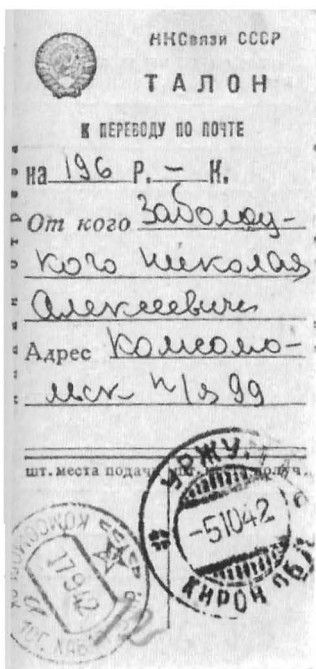 НКСвязи СССР
ТАЛОН
К ПЕРЕВОДУ ПО ПОЧТЕ
на 196 Р. – К.
От кого Заболоц-
кого Николая
Алексеевича
Адрес Комсомо-
льск п/я 99
шт. места подачи
УРЖУМ
-51042
КИРОВ ОБЛ
КОМСОМОЛЬСК
17942